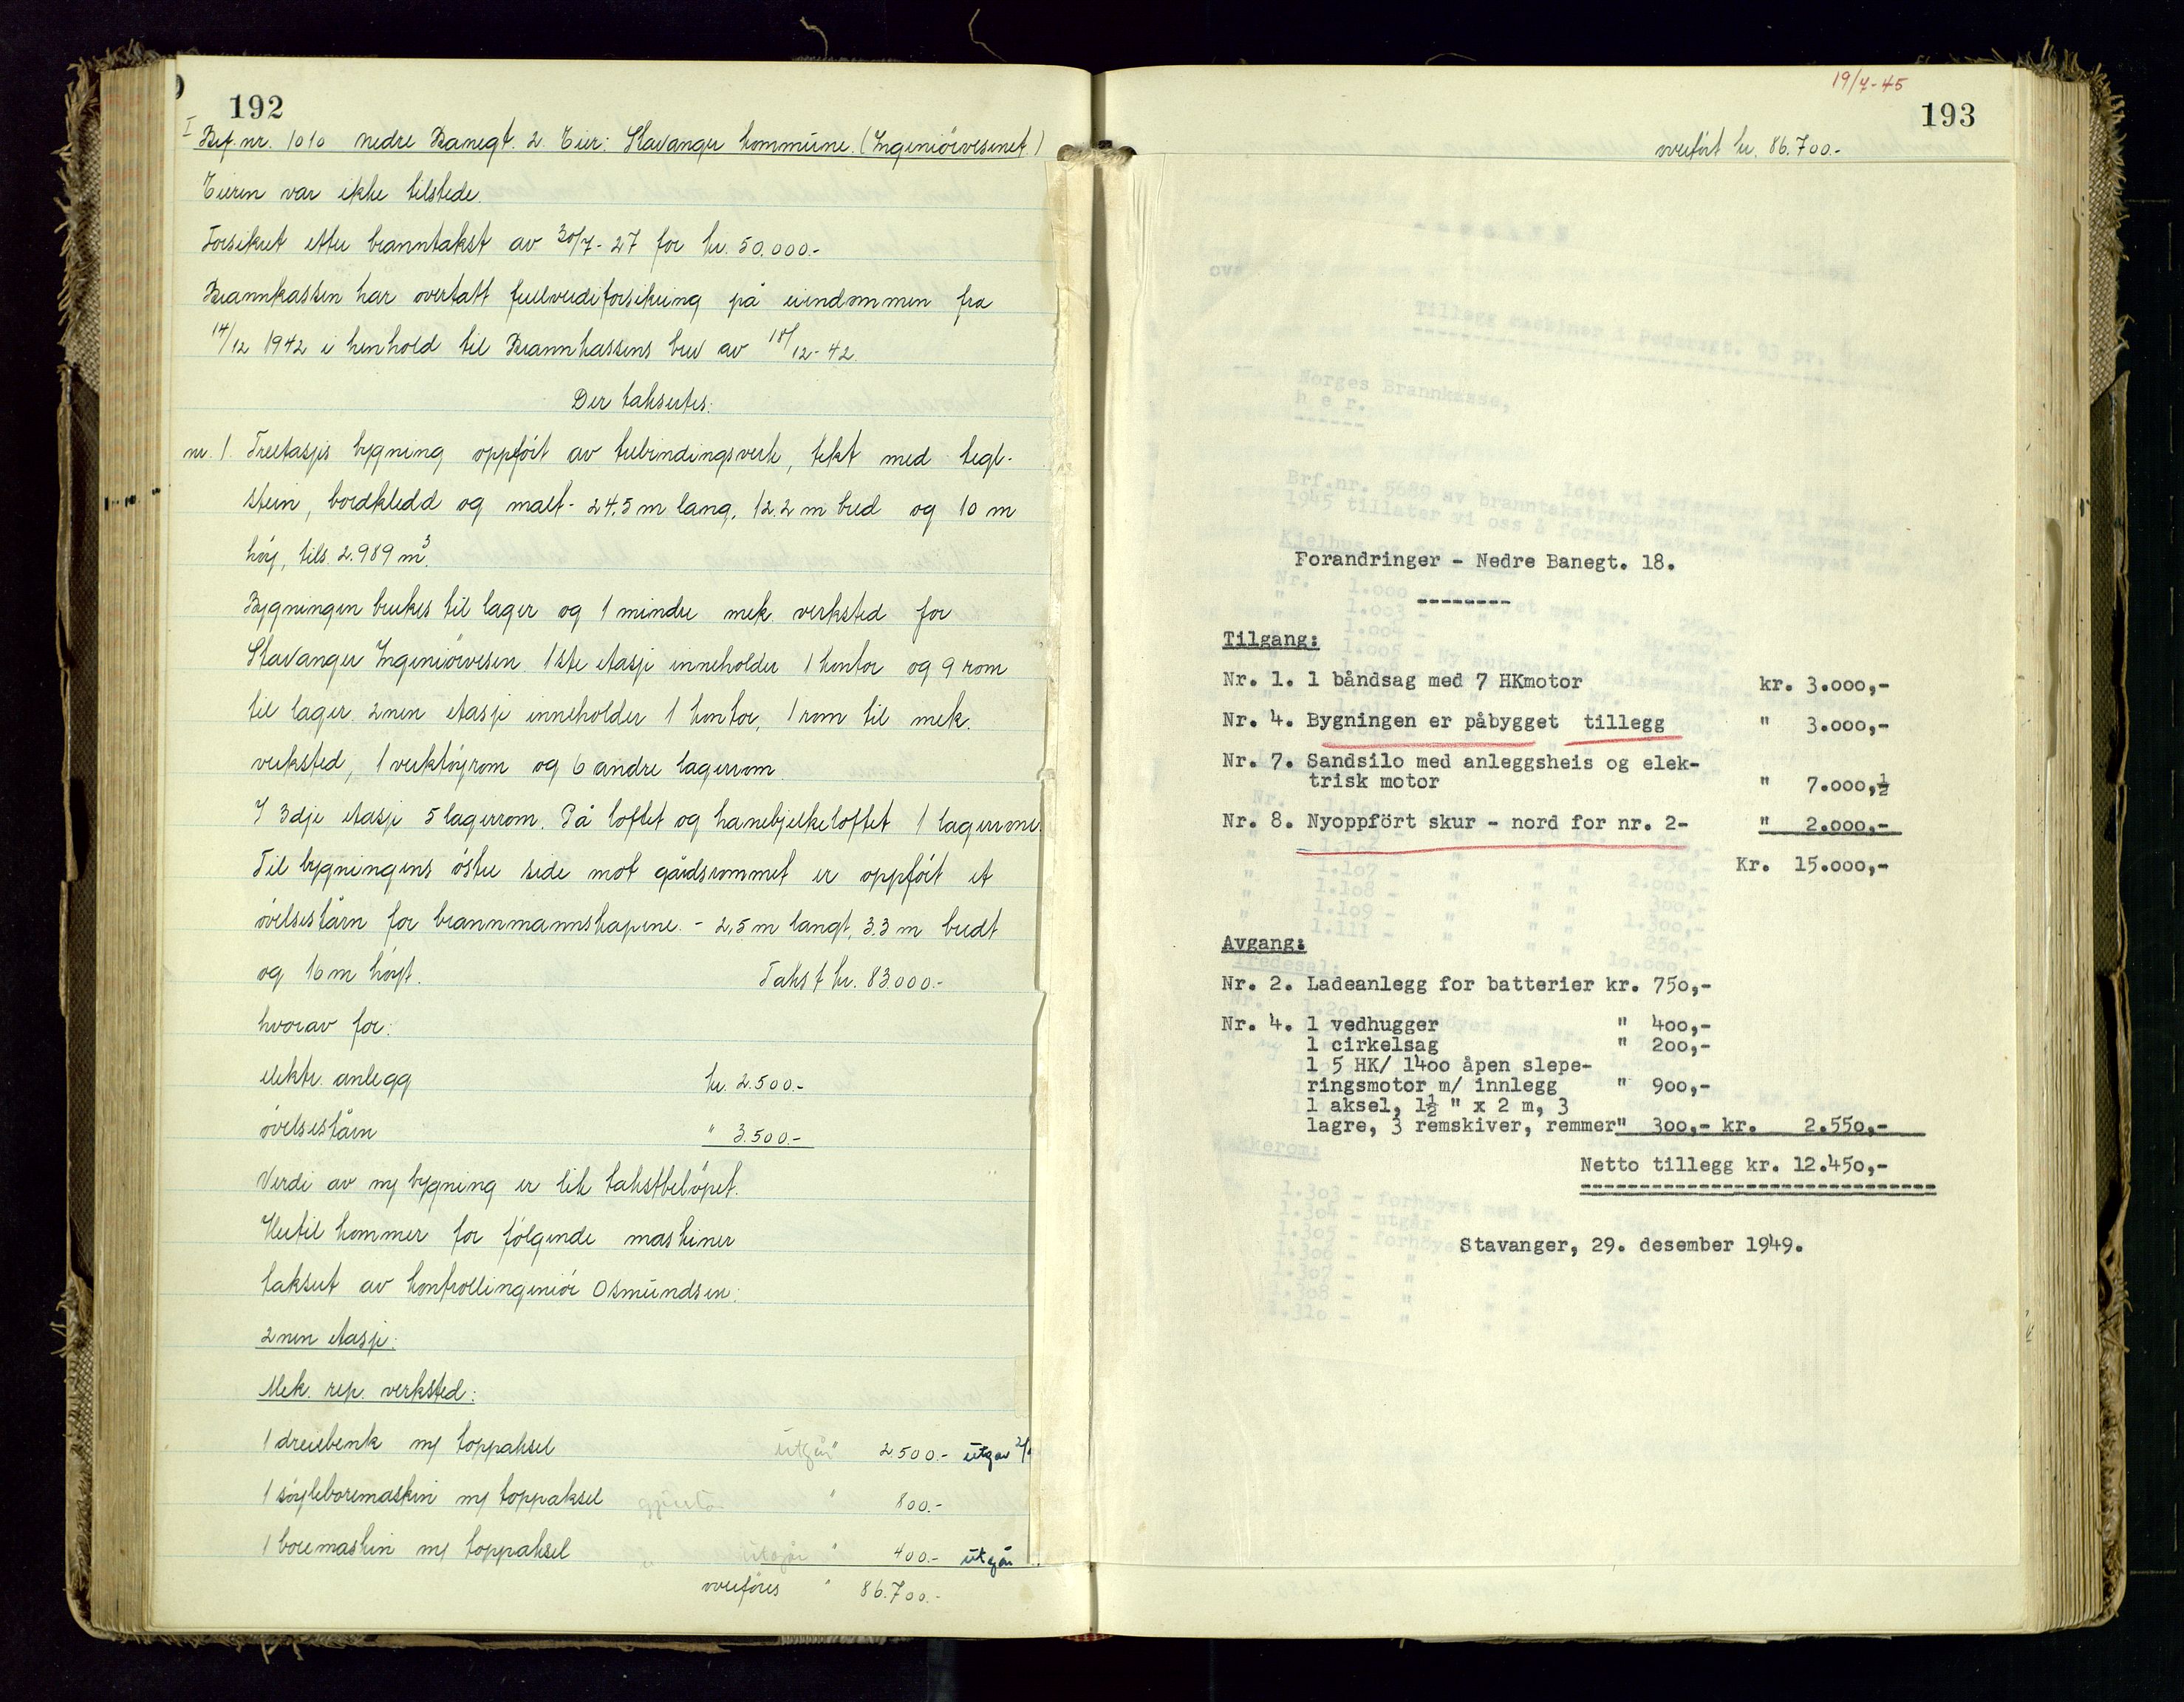 192
I Brf. nr. 1010 Nedre Banegt. 2. Eier: Stavanger kommune. (Ingeniörvesenet.)
Eieren var ikke tilstede.
Forsikret etter branntakst av 30/7-27 for kr. 50.000.-
Brannkassen har overtatt fullverdiforsikring på eiendommen fra
14/12 1942 i henhold til Brannkassens brev av 18/12-42.
Der takseertes:
nr. 1. Treetasjes bygning oppfört av trebindingsverk, tekt med tegl-
stein, bordkledd og malt - 24,5 m lang, 12.2 m bred og 10 m
höy, tils. 2.989 m³.
Bygningen brukes til lager og 1 mindre mek. verksted for
Stavanger Ingeniörvesen. 1ste etasje inneholder 1 kontor og 9 rom
til lager. 2nen etasje inneholder 1 kontor, 1 rom til mek.
verksted, 1 verktöyrom og 6 andre lagerrom.
I 3dje etasje 5 lagerrom. På loftet og hanebjelkeloftet 1 lagerrom.
Til bygningens östre side mot gårdsrommet er oppfört et
övelsestårn for brannmannskapene. - 2,5 m langt, 3.3 m bredt
og 16 m höyt. Takst kr. 83000.-
hvorav for:
elektr. anlegg kr. 2.500.-
övelsestårn " 3.500.-
Verdi av ny bygning er lik takstbelöpet.
Hertil kommer for fölgende maskiner
taksert av kontrollingeniör Osmundsen:
2nen etasje:
Mek. rep. verksted:
1 dreiebenk m/ toppaksel utgår " 2.500.- utgår
1 söyleboremaskin m/ toppaksel " 800.-
1 boremaskin m/ toppaksel utgår " 400.- utgår
overföres " 86.700.-
19/7-45
193
overfört kr. 86.700.-
Forandringer - Nedre Banegt. 18.
---------
Tilgang:
Nr. 1. 1 båndsag med 7 HKmotor kr. 3.000,-
Nr. 4. Bygningen er påbygget tillegg " 3.000,-
Nr. 7. Sandsilo med anleggsheis og elek-
trisk motor " 7.000,½
Nr. 8. Nyoppfört skur - nord for nr. 2- " 2.000,-
Kr. 15.000,-
Avgang:
Nr. 2. Ladeanlegg for batterier kr. 750,-
Nr. 4. 1 vedhugger " 400,-
1 cirkelsag " 200,-
1 5 HK/ 1400 åpen slepe-
ringsmotor m/ innlegg " 900,-
1 aksel, 1½ " x 2 m, 3
lagre, 3 remskiver, remmer" 300,- kr. 2.550,-
Netto tillegg kr. 12.450,-
Stavanger, 29. desember 1949.